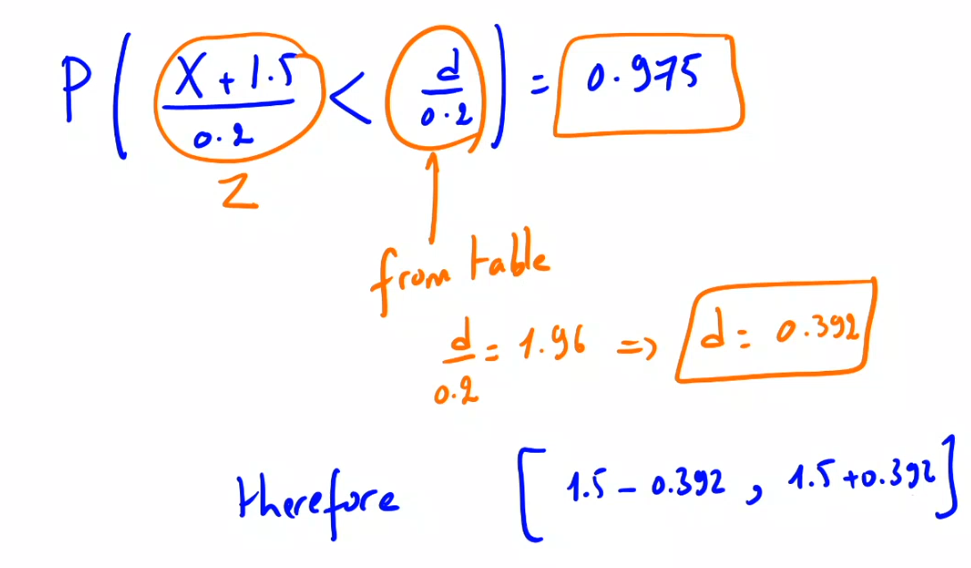 P( (X + 1.5)/0.2 < d/0.2 ) = 0.975
Z
from table
d/0.2 = 1.96 => d = 0.392
therefore [ 1.5 - 0.392 , 1.5 + 0.392 ]